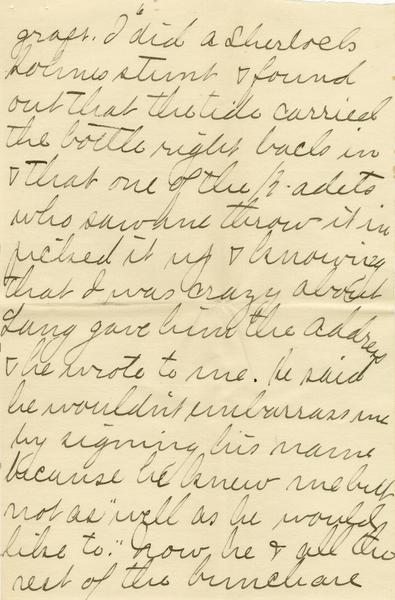 graft. I "did a Sherlock
Holmes stunt & found
out that the tide carried
the bottle right back in
& that one of the K-adets
who saw me throw it in
picked it up & knowing
that I was crazy about
Lang gave him the address
& he wrote to me. he said
he wouldn't embarrass me
by signing his name
because he knew me but
not as "well as he would
like to." now he & all the
rest of the bunch are